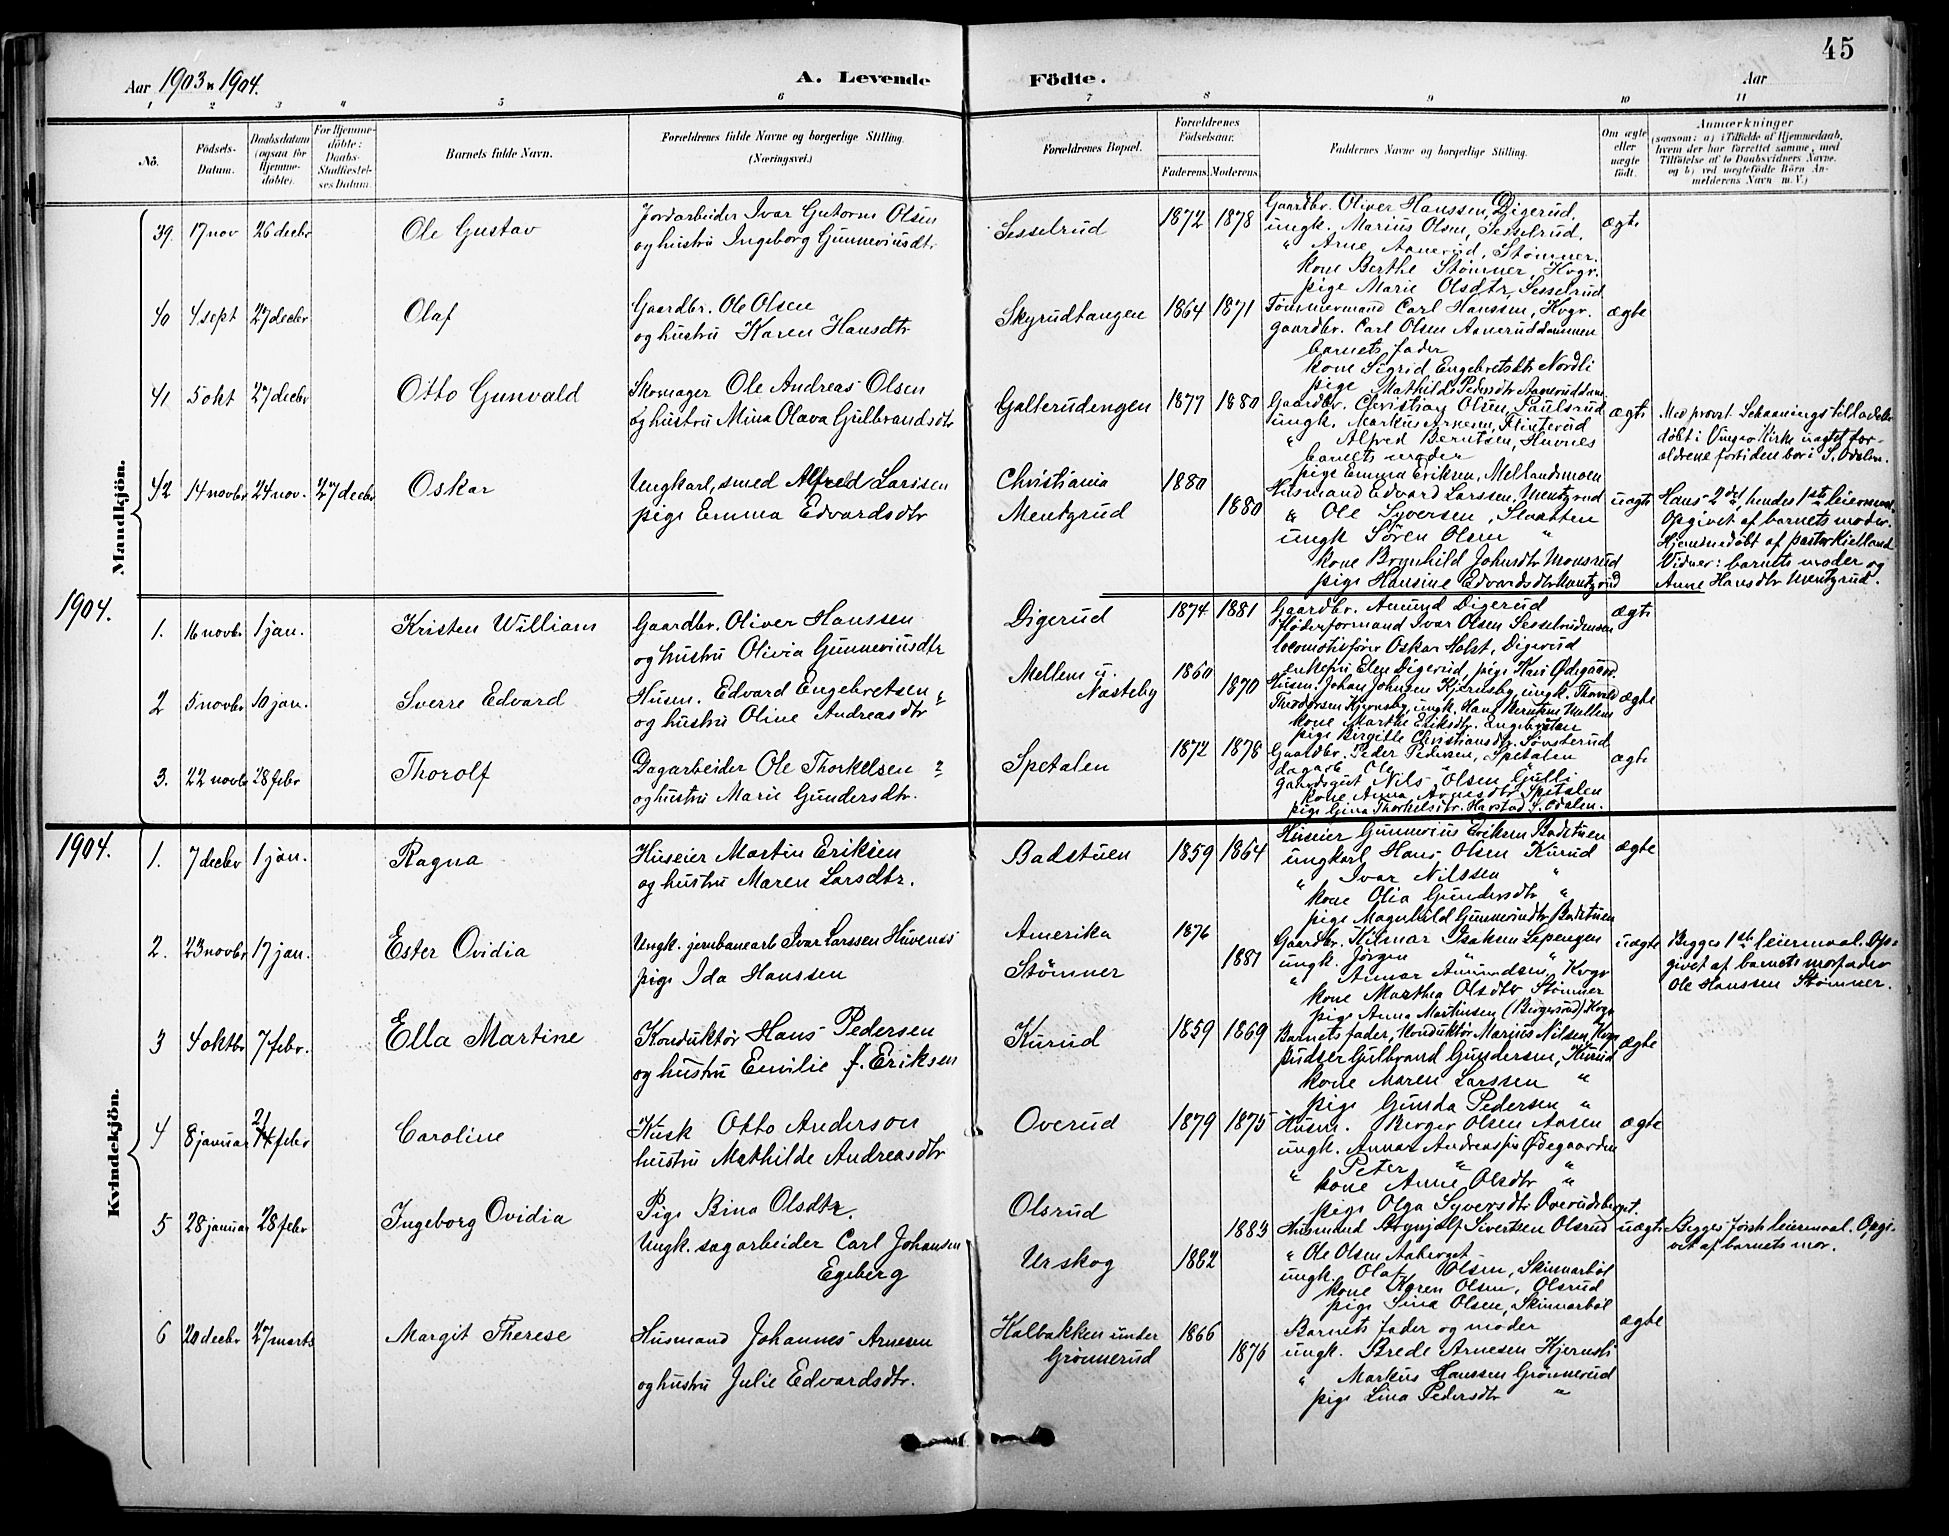 45
Aar 1903 n 1904.
A. Levende Födte.
Aar
1 2 3 4 5 6 7 8 9 10 11
No.
Födsels-Datum.
Daabsdatum (ogsaa for Hjemme-döbte).
For Hjemme-döbte: Daabs-Stadfæstel-ses Datum.
Barnets fulde Navn.
Forældrenes fulde Navne og borgerlige Stilling. (Næringsvei.)
Forældrenes Bopæl.
Forældrenes Födselsaar.
Faderens Moderens
Faddernes Navne og borgerlige Stilling.
Om ægte eller uægte födt.
Anmærkninger
(saasom: a) i Tilfælde af Hjemmedaab,
hvem der har forrettet samme, med
Tilföielse af to Daabsvidners Navne,
og b) ved uægtefödte Börn An-
melderens Navn m. V.)
Mandkjön.
39. 17 nov 26 decbr Ole Gustav
Jordarbeider Ivar Gutorm Olsen
og hustru Ingeborg Gunneriusdtr.
Sesselrud 1872 1878
Gaardbr. Oliver Hanssen, Digerud.
ungk. Marius Olsen, Sesselrud.
" Arne Aanerud, Stømner.
kone Berthe Stømner, Kvgr.
pige Marie Olsdtr, Sesselrud
ægte
40 4 sept 27 decbr Olaf
Gaardbr. Ole Olsen
og hustru Karen Hansdtr
Skyrudtangen 1864 1871
Tømmermand Carl Hanssen, Kvgr.
gaardbr. Carl Olsen Aaneruddammen
barnets fader
kone Sigrid Engebretsdtr Nordli
pige Mathilde Pedersdtr Aaneruddam
ægte
41 5 okt 27 decbr Otto Gunvald
Skomager Ole Andreas Olsen
og hustru Mina Olava Gulbrandsdtr
Galterudengen 1877 1880
Gaardbr. Christian Olsen, Paulsrud
ungk. Markus Arnesen, Flinterud
" Alfred Berntsen, Huvnes
barnets moder
pige Emma Eriksen, Mellandsmoen
ægte
Med provst Schaanings tilladelse
døbt i Vinger Kirke uagtet for-
ældrene for tiden bor i S. Odalen.
42 14 novbr 24 nov. 27 decbr Oskar
Ungkarl, smed Alfred Larssen
pige Emma Edvardsdtr
Christiania 1880
Mentyrud 1880
Husmand Edvard Larssen, Mentyrud
" Ole Syversen, Slaatten
ungk Søren Olsen "
kone Brynhild Johnsdtr Monsrud
pige Hansine Edvardsdtr Mentyrud
uægte
Hans 2det, hendes 1ste leiermaal.
Opgivet af barnets moder.
Hjemmedøbt af pastor Kielland
Vidner: barnets moder og
Anne Hansdtr Mentyrud.
1904.
1. 16 novbr 1 jan. Kristen William
Gaardbr. Oliver Hanssen
og hustru Olivia Gunneriusdtr
Digerud 1874 1881
Gaardbr. Amund Digerud
fløderformand Ivar Olsen Sesselrudensen
locomotivfører Oskar Holst, Digerud
enkefru Elen Digerud, pige Kari Ødegaard.
ægte
2 5 novbr 10 jan. Sverre Edvard
Husm. Edvard Engebretsen
og hustru Oline Andreasdtr
Mellem u. Næsteby 1860 1870
Husm. Johan Johnsen Kjernsby, ungk. Thorvald
Theodorsen Kjernsby, ungk. Hans Berntsen Mellem
kone Marthe Eriksdtr. Engebretsen
pige Birgitte Christiansdtr. Sønsterud
ægte
3. 22 novbr 28 febr Thorolf
Dagarbeider Ole Thorkelsen
og hustru Marie Gundersdtr.
Spetalen 1872 1878
Gaardbr. Peder Pedersen, Spetalen
dagarb. Ole "
gaardsgut Nils Olsen Gulli
kone Anna Arnesdtr Spetalen
pige Gina Thorkelsdtr. Harstad S. Odalen.
ægte
1904.
Kvindekjön.
1. 7 decbr 1 jan. Ragna
Huseier Martin Eriksen
og hustru Maren Larsdtr.
Badstuen 1859 1864
Huseier Gunnerius Eriksen Badstuen
ungkarl Hans Olsen Kurud
" Ivar Nilssen "
kone Olia Gundersdtr "
pige Magnhild Gunneriusdtr Badstuen
ægte
2. 23 novbr 17 jan. Ester Ovidia
Ungk. jernbanearb Ivar Larssen Huvenes
pige Ida Hanssen
Amerika 1876
Stømner 1881
Gaardbr. Hilmar Isaksen Sæpengen
ungk. Jörgen " "
" Annar Amundsen, Kvgr
kone Marthea Olsdtr Stømner
pige Anna Marthinsen (Bergersrud) Kvgr
uægte
Begges 1ste leiermaal. Op-
givet af barnets morfader
Ole Hanssen Stømner.
3 4 oktbr 7 febr. Ella Martine
Konduktør Hans Pedersen
og hustru Emilie f. Eriksen
Kurud 1859 1869
Barnets fader, Konduktør Marius Nilsen, Kvgr
pudser Gulbrand Gundersen, Kurud
kone Maren Larssen "
pige Gunda Pedersen "
ægte
4 8 januar 21 febr Caroline
Kusk Otto Anderson
hustru Mathilde Andreasdtr
Overud 1879 1875
Husm. Berger Olsen Aasen
ungk. Annar Andreassen Ødegaarden
" Peter " "
kone Anne Olsdtr "
pige Olga Syversdtr Overudsberget.
ægte
5 28 januar 28 febr Ingeborg Ovidia
Pige Bina Olsdtr.
Ungk. sagarbeider Carl Johansen
Egeberg
Olsrud 1883
Urskog 1882
Husmand Brynjolf Sivertsen Olsrud
" Ole Olsen Aaberget
ungk. Olaf Olsen, Skinnarbøl
kone Karen Olsen, Olsrud
pige Sina Olsen, Skinnarbøl
uægte
Begges første leiermaal. Opgi-
vet af barnets mor.
6 20 decbr 27 marts Margit Therese
Husmand Johannes Arnesen
og hustru Julie Edvardsdtr.
Kalbakken under
Grønnerud 1866 1876
Barnets fader og moder
ungk. Brede Arnesen Kjernsli
" Markus Hanssen Grønnerud
pige Lina Pedersdtr "
ægte